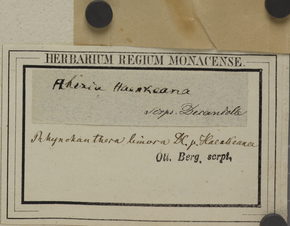 HERBARIUM REGIUM MONACENSE.
Rhexia Haenkeana
scrps. Decandolle
Rhynchanthera limora DC. γ. Haenkeana
Ott. Berg. scrpt.